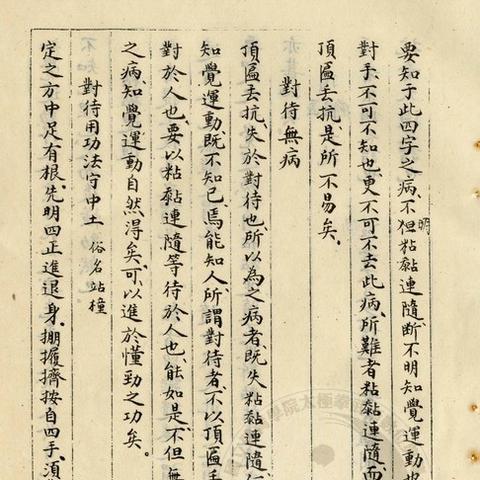 要知于此四字之病、不但粘黏連隨、斷不明知覺運動也
明
對手、不可不知也、更不可不去此病、所難者粘黏連隨、而
頂匾丟抗、是所不易矣。
對待無病
頂匾丟抗、失於對待也、所以為之病者、既失粘黏連隨、
知覺運動、既不知己、焉能知人、所謂對待者、不以頂匾丟
對於人也、要以粘黏連隨等待於人也、能如是、不但無
之病、知覺運動自然得矣、可以進於懂勁之功矣。
對待用功法守中土 俗名站橦
定之方中足有根、先明四正進退身、掤攦擠按自四手、須